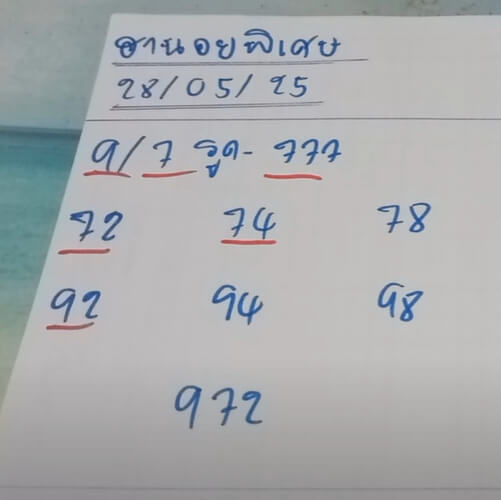 ฮานอยพิเศษ
28/05/25
9/7 รูด- 777
72 74 78
92 94 98
972